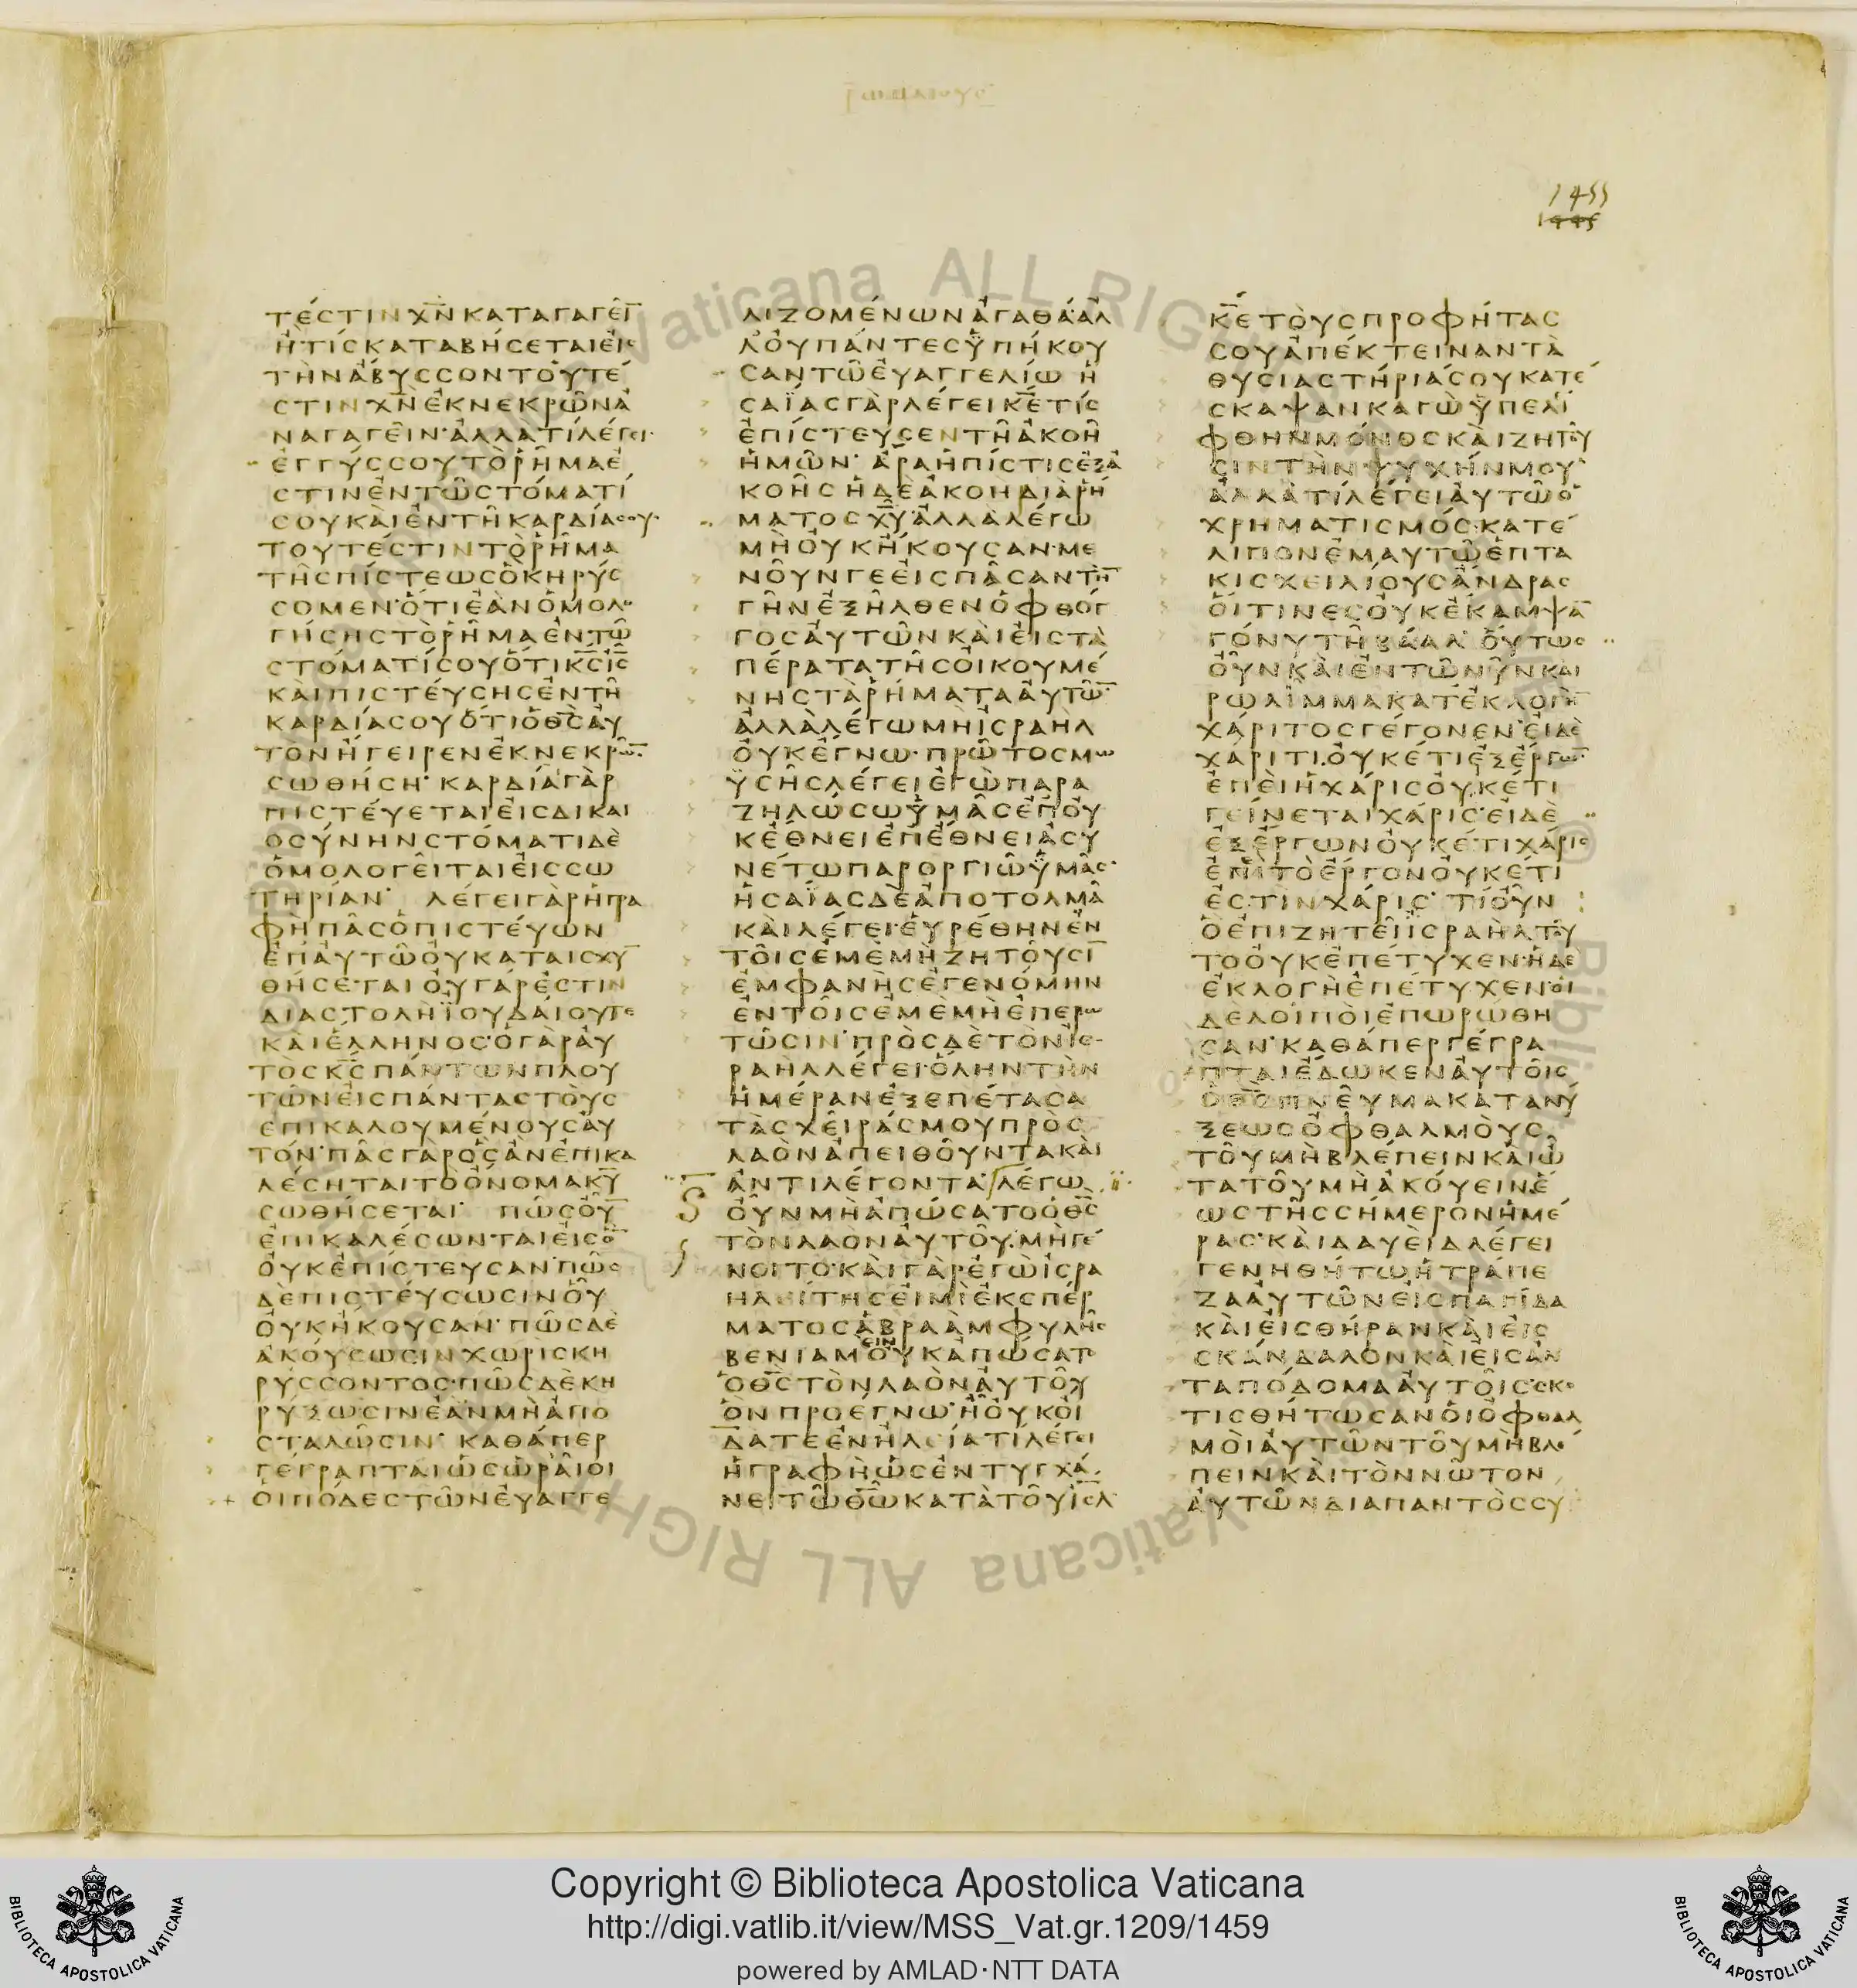 ρωμαιουσ
1455
1445
ΤΕCΤΙΝΧ̅Ν̅ΚΑΤΑΓΑΓΕΙ̅
ΗΤΙCΚΑΤΑΒΗCΕΤΑΙΕΙC
ΤΗΝΑΒΥCCΟΝΤΟΥΤΕ
CΤΙΝΧ̅Ν̅ΕΚΝΕΚΡΩΝΑ
ΝΑΓΑΓΕΙΝ·ΑΛΛΑΤΙΛΕΓΕΙ·
ΕΓΓΥCCΟΥΤΟΡΗΜΑΕ
CΤΙΝΕΝΤΩCΤΟΜΑΤΙ
CΟΥΚΑΙΕΝΤΗΚΑΡΔΙΑCΟΥ·
ΤΟΥΤΕCΤΙΝΤΟΡΗΜΑ
ΤΗCΠΙCΤΕΩCΟΚΗΡΥC
CΟΜΕΝ·ΟΤΙΕΑΝΟΜΟΛΟ
ΓΗCΗCΤΟΡΗΜΑΕΝΤΩ
CΤΟΜΑΤΙCΟΥΟΤΙΚ̅C̅Ι̅C̅
ΚΑΙΠΙCΤΕΥCΗCΕΝΤΗ
ΚΑΡΔΙΑCΟΥΟΤΙΟΘ̅C̅ΑΥ
ΤΟΝΗΓΕΙΡΕΝΕΚΝΕΚΡΩ̅
CΩΘΗCΗ· ΚΑΡΔΙΑΓΑΡ
ΠΙCΤΕΥΕΤΑΙΕΙCΔΙΚΑΙ
ΟCΥΝΗΝCΤΟΜΑΤΙΔΕ
ΟΜΟΛΟΓΕΙΤΑΙΕΙCCΩ
ΤΗΡΙΑΝ· ΛΕΓΕΙΓΑΡΗΓΡΑ
ΦΗΠΑCΟΠΙCΤΕΥΩΝ
ΕΠΑΥΤΩΟΥΚΑΤΑΙCΧΥ̅
ΘΗCΕΤΑΙΟΥΓΑΡΕCΤΙΝ
ΔΙΑCΤΟΛΗΪΟΥΔΑΙΟΥΤΕ
ΚΑΙΕΛΛΗΝΟC·ΟΓΑΡΑΥ
ΤΟCΚ̅C̅ΠΑΝΤΩΝΠΛΟΥ
ΤΩΝΕΙCΠΑΝΤΑCΤΟΥC
ΕΠΙΚΑΛΟΥΜΕΝΟΥCΑΥ
ΤΟΝ·ΠΑCΓΑΡΟCΑΝΕΠΙΚΑ
ΛΕCΗΤΑΙΤΟΟΝΟΜΑΚ̅Υ̅
CΩΘΗCΕΤΑΙ· ΠΩCΟΥ̅
ΕΠΙΚΑΛΕCΩΝΤΑΙΕΙCΟ̅
ΟΥΚΕΠΙCΤΕΥCΑΝ·ΠΩC
ΔΕΠΙCΤΕΥCΩCΙΝΟΥ
ΟΥΚΗΚΟΥCΑΝ·ΠΩCΔΕ
ΑΚΟΥCΩCΙΝΧΩΡΙCΚΗ
ΡΥCCΟΝΤΟC·ΠΩCΔΕΚΗ
ΡΥΞΩCΙΝΕΑΝΜΗΑΠΟ
CΤΑΛΩCΙΝ· ΚΑΘΑΠΕΡ
ΓΕΓΡΑΠΤΑΙΩCΩΡΑΙΟΙ
ΟΙΠΟΔΕCΤΩΝΕΥΑΓΓΕ
ΛΙΖΟΜΕΝΩΝΑΓΑΘΑ·ΑΛ
ΛΟΥΠΑΝΤΕCΫΠΗΚΟΥ
CΑΝΤΩΕΥΑΓΓΕΛΙΩ Η
CΑΪΑCΓΑΡΛΕΓΕΙΚ̅Ε̅ΤΙC
ΕΠΙCΤΕΥCΕΝΤΗΑΚΟΗ
ΗΜΩΝ· ΑΡΑΗΠΙCΤΙCΕΞΑ
ΚΟΗCΗΔΕΑΚΟΗΔΙΑΡΗ
ΜΑΤΟCΧ̅Υ̅·ΑΛΛΑΛΕΓΩ
ΜΗΟΥΚΗΚΟΥCΑΝ·ΜΕ
ΝΟΥΝΓΕΕΙCΠΑCΑΝΤΗ̅
ΓΗΝΕΞΗΛΘΕΝΟΦΘΟΓ
ΓΟCΑΥΤΩΝΚΑΙΕΙCΤΑ
ΠΕΡΑΤΑΤΗCΟΙΚΟΥΜΕ
ΝΗCΤΑΡΗΜΑΤΑΑΥΤΩ̅
ΑΛΛΑΛΕΓΩΜΗΙCΡΑΗΛ
ΟΥΚΕΓΝΩ·ΠΡΩΤΟCΜΩ
ΫCΗCΛΕΓΕΙΕΓΩΠΑΡΑ
ΖΗΛΩCΩΫΜΑCΕΠΟΥ
ΚΕΘΝΕΙΕΠΕΘΝΕΙΑCΥ
ΝΕΤΩΠΑΡΟΡΓΙΩΫΜΑC·
ΗCΑΪΑCΔΕΑΠΟΤΟΛΜΑ
ΚΑΙΛΕΓΕΙ·ΕΥΡΕΘΗΝΕΝ
ΤΟΙCΕΜΕΜΗΖΗΤΟΥCΙ̅
ΕΜΦΑΝΗCΕΓΕΝΟΜΗΝ
ΕΝΤΟΙCΕΜΕΜΗΕΠΕΡΩ
ΤΩCΙΝ·ΠΡΟCΔΕΤΟΝΙC
ΡΑΗΛΛΕΓΕΙ·ΟΛΗΝΤΗΝ
ΗΜΕΡΑΝΕΞΕΠΕΤΑCΑ
ΤΑCΧΕΙΡΑCΜΟΥΠΡΟC
ΛΑΟΝΑΠΕΙΘΟΥΝΤΑΚΑΙ
ΑΝΤΙΛΕΓΟΝΤΑ·ΛΕΓΩ
ΟΥΝΜΗΑΠΩCΑΤΟΟΘ̅C̅
ΤΟΝΛΑΟΝΑΥΤΟΥ·ΜΗΓΕ
ΝΟΙΤΟ·ΚΑΙΓΑΡΕΓΩΙCΡΑ
ΗΛΕΙΤΗCΕΙΜΙΕΚCΠΕΡ
ΜΑΤΟCΑΒΡΑΑΜΦΥΛΗC
ΒΕΝΙΑΜΕΙΝΟΥΚΑΠΩCΑΤΟ
ΟΘ̅C̅ΤΟΝΛΑΟΝΑΥΤΟΥ
ΟΝΠΡΟΕΓΝΩ·ΗΟΥΚΟΙ
ΔΑΤΕΕΝΗΛΕΙΑΤΙΛΕΓΕΙ
ΗΓΡΑΦΗΩCΕΝΤΥΓΧΑ
ΝΕΙΤΩΘ̅Ω̅ΚΑΤΑΤΟΥΙ̅C̅Λ̅
Κ̅Ε̅ΤΟΥCΠΡΟΦΗΤΑC
CΟΥΑΠΕΚΤΕΙΝΑΝΤΑ
ΘΥCΙΑCΤΗΡΙΑCΟΥΚΑΤΕ
CΚΑΨΑΝΚΑΓΩΫΠΕΛΙ
ΦΘΗΝΜΟΝΟCΚΑΙΖΗΤΟΥ
CΙΝΤΗΝΨΥΧΗΝΜΟΥ
ΑΛΛΑΤΙΛΕΓΕΙΑΥΤΩΟ
ΧΡΗΜΑΤΙCΜΟC·ΚΑΤΕ
ΛΙΠΟΝΕΜΑΥΤΩΕΠΤΑ
ΚΙCΧΕΙΛΙΟΥCΑΝΔΡΑC
ΟΙΤΙΝΕCΟΥΚΕΚΑΜΨΑ̅
ΓΟΝΥΤΗΒΑΑΛ·ΟΥΤΩC
ΟΥΝΚΑΙΕΝΤΩΝΥΝΚΑΙ
ΡΩΛΙΜΜΑΚΑΤΕΚΛΟΓΗ̅
ΧΑΡΙΤΟCΓΕΓΟΝΕΝ·ΕΙΔΕ
ΧΑΡΙΤΙ·ΟΥΚΕΤΙΕΞΕΡΓΩ̅
ΕΠΕΙΗΧΑΡΙCΟΥΚΕΤΙ
ΓΕΙΝΕΤΑΙΧΑΡΙC·ΕΙΔΕ
ΕΞΕΡΓΩΝΟΥΚΕΤΙΧΑΡΙC
ΕΠΙΤΟΕΡΓΟΝΟΥΚΕΤΙ
ΕCΤΙΝΧΑΡΙC· ΤΙΟΥΝ
ΟΕΠΙΖΗΤΕΙΪCΡΑΗΛΤΟΥ
ΤΟΟΥΚΕΠΕΤΥΧΕΝ·ΗΔΕ
ΕΚΛΟΓΗΕΠΕΤΥΧΕΝ·ΟΙ
ΔΕΛΟΙΠΟΙΕΠΩΡΩΘΗ
CΑΝ·ΚΑΘΑΠΕΡΓΕΓΡΑ
ΠΤΑΙΕΔΩΚΕΝΑΥΤΟΙC
ΟΘ̅C̅ΠΝΕΥΜΑΚΑΤΑΝΥ
ΞΕΩCΟΦΘΑΛΜΟΥC
ΤΟΥΜΗΒΛΕΠΕΙΝΚΑΙΩ
ΤΑΤΟΥΜΗΑΚΟΥΕΙΝΕ
ΩCΤΗCCΗΜΕΡΟΝΗΜΕ
ΡΑC·ΚΑΙΔΑΥΕΙΔΛΕΓΕΙ
ΓΕΝΗΘΗΤΩΗΤΡΑΠΕ
ΖΑΑΥΤΩΝΕΙCΠΑΓΙΔΑ
ΚΑΙΕΙCΘΗΡΑΝΚΑΙΕΙC
CΚΑΝΔΑΛΟΝΚΑΙΕΙCΑΝ
ΤΑΠΟΔΟΜΑΑΥΤΟΙC·CΚΟ
ΤΙCΘΗΤΩCΑΝΟΙΟΦΘΑΛ
ΜΟΙΑΥΤΩΝΤΟΥΜΗΒΛΕ
ΠΕΙΝΚΑΙΤΟΝΝΩΤΟΝ
ΑΥΤΩΝΔΙΑΠΑΝΤΟCCΥ
Copyright © Biblioteca Apostolica Vaticana
http://digi.vatlib.it/view/MSS_Vat.gr.1209/1459
powered by AMLAD·NTT DATA
BIBLIOTECA APOSTOLICA VATICANA
BIBLIOTECA APOSTOLICA VATICANA